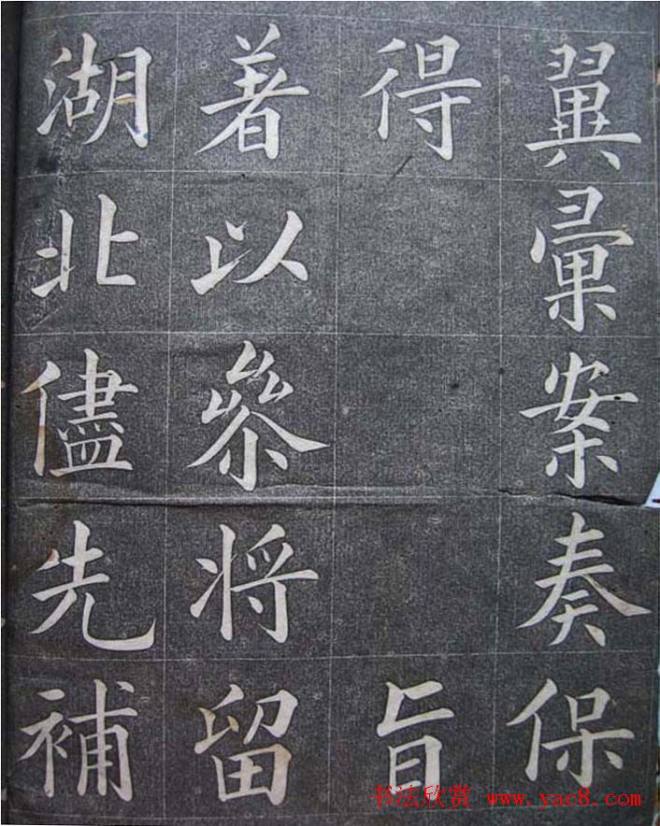 翼彙案奏保
得旨
著以參將留
湖北儘先補
书法欣赏 www.yac8.com